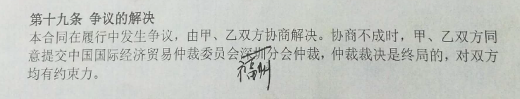 第十九条 争议的解决
本合同在履行中发生争议，由甲、乙双方协商解决。协商不成时，甲、乙双方同
意提交中国国际经济贸易仲裁委员会深圳分会仲裁，仲裁裁决是终局的，对双方
福州
均有约束力。